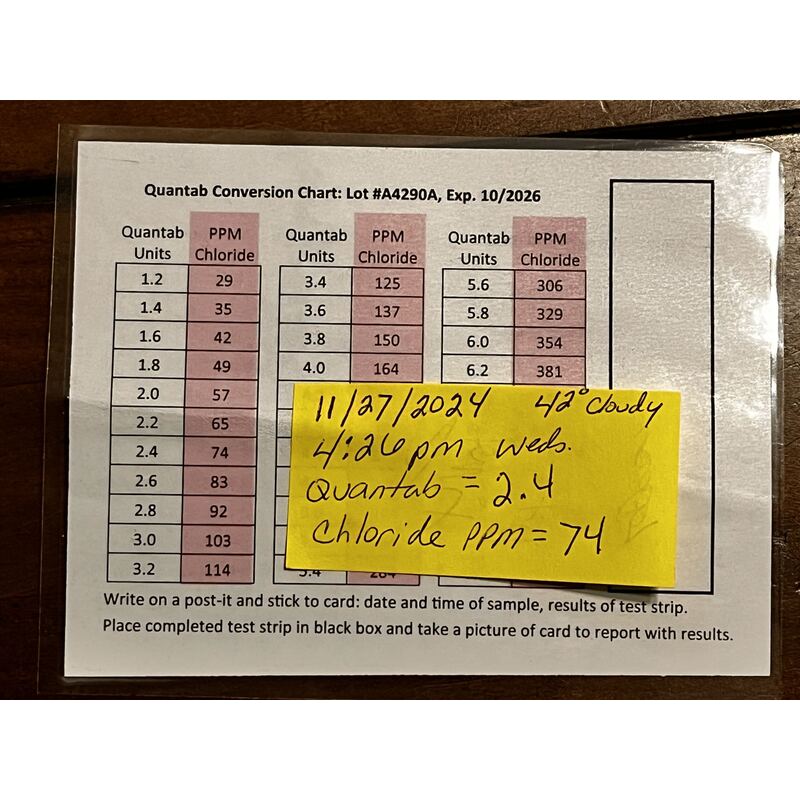 Quantab Conversion Chart: Lot #A4290A, Exp. 10/2026
Quantab Units PPM Chloride Quantab Units PPM Chloride Quantab Units PPM Chloride
1.2 29 3.4 125 5.6 306
1.4 35 3.6 137 5.8 329
1.6 42 3.8 150 6.0 354
1.8 49 4.0 164 6.2 381
2.0 57
2.2 65
2.4 74
2.6 83
2.8 92
3.0 103
3.2 114
11/27/2024 42° Cloudy
4:26 pm Weds.
Quantab = 2.4
Chloride PPM = 74
Write on a post-it and stick to card: date and time of sample, results of test strip.
Place completed test strip in black box and take a picture of card to report with results.